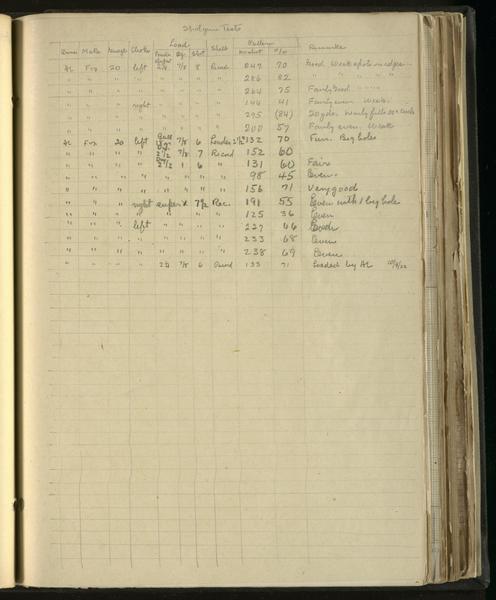 Shotgun Tests
Load Pattern
Owner Make Gauge Choke Powder Oz. Shot Shell No. shot % Remarks
AL Fox 20 left 7/8 8 Record 247 70 Good. Weak spots on edges.
" " " " " " " " 286 82 " " " "
" " " " " " " " 264 75 Fairly Good " "
" " " right " " " " 144 41 Fairly even. Weak.
" " " " " " " " 295 (84) 20 yds. Nearly fills 30" circle
" " " " " " " " 200 57 Fairly even. Weak
AL Fox 20 left 7/8 6 132 70 Fair. Big holes
" " " " 2 1/2 7/8 7 Record 152 60
" " " " 2 1/2 1 6 " 131 60 Fair
" " " " " " " " 98 45 Even.
" " " " " " " " 156 71 Very good
" " " right 7 1/2 Rec. 191 55 Even with 1 big hole
" " " " " " " " 125 36 Even
" " " left " " " " 227 66
" " " " " " " " 233 68 Even
" " " " " " " " 238 69 Even
" " " " 7/8 6 133 71 Loaded by AL